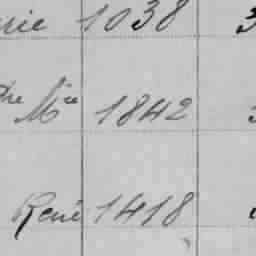 rie 1038 3
Dre Mie 1842
René 1418